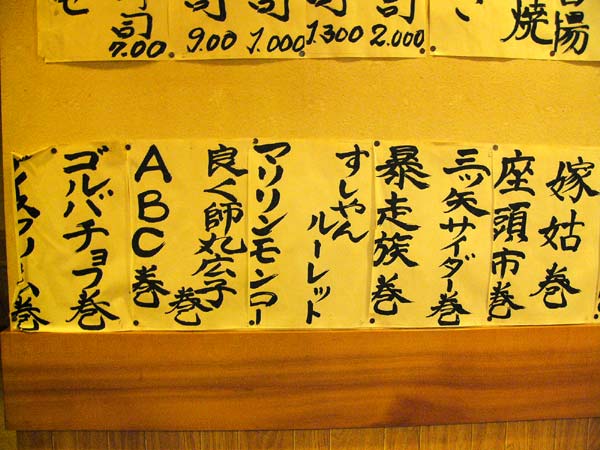 焼
司
2.000
司
1.300
司
1.000
司
9.00
司
7.00
嫁姑巻
座頭市巻
三ツ矢サイダー巻
暴走族巻
すしやん
ルーレット
マリリンモンロー
良く師丸広子
巻
ABC巻
ゴルバチョフ巻